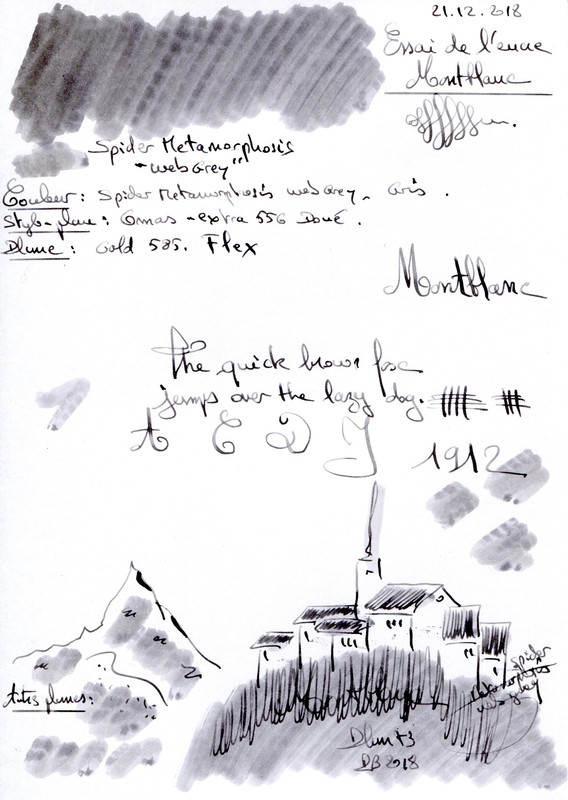 21.12.2018
Essai de l'encre
Montblanc
Spider Metamorphosis
"web Grey"
Couleur: Spider Metamorphosis web Grey. Gris.
Stylo-plume: Omas - extra 556 Doué.
Plume: Gold 585. Flex
Montblanc
The quick brown fox
jumps over the lazy dog.
A C D J
1912
Autres plumes:
Spider
Metamorphosis
web grey
DB 2018